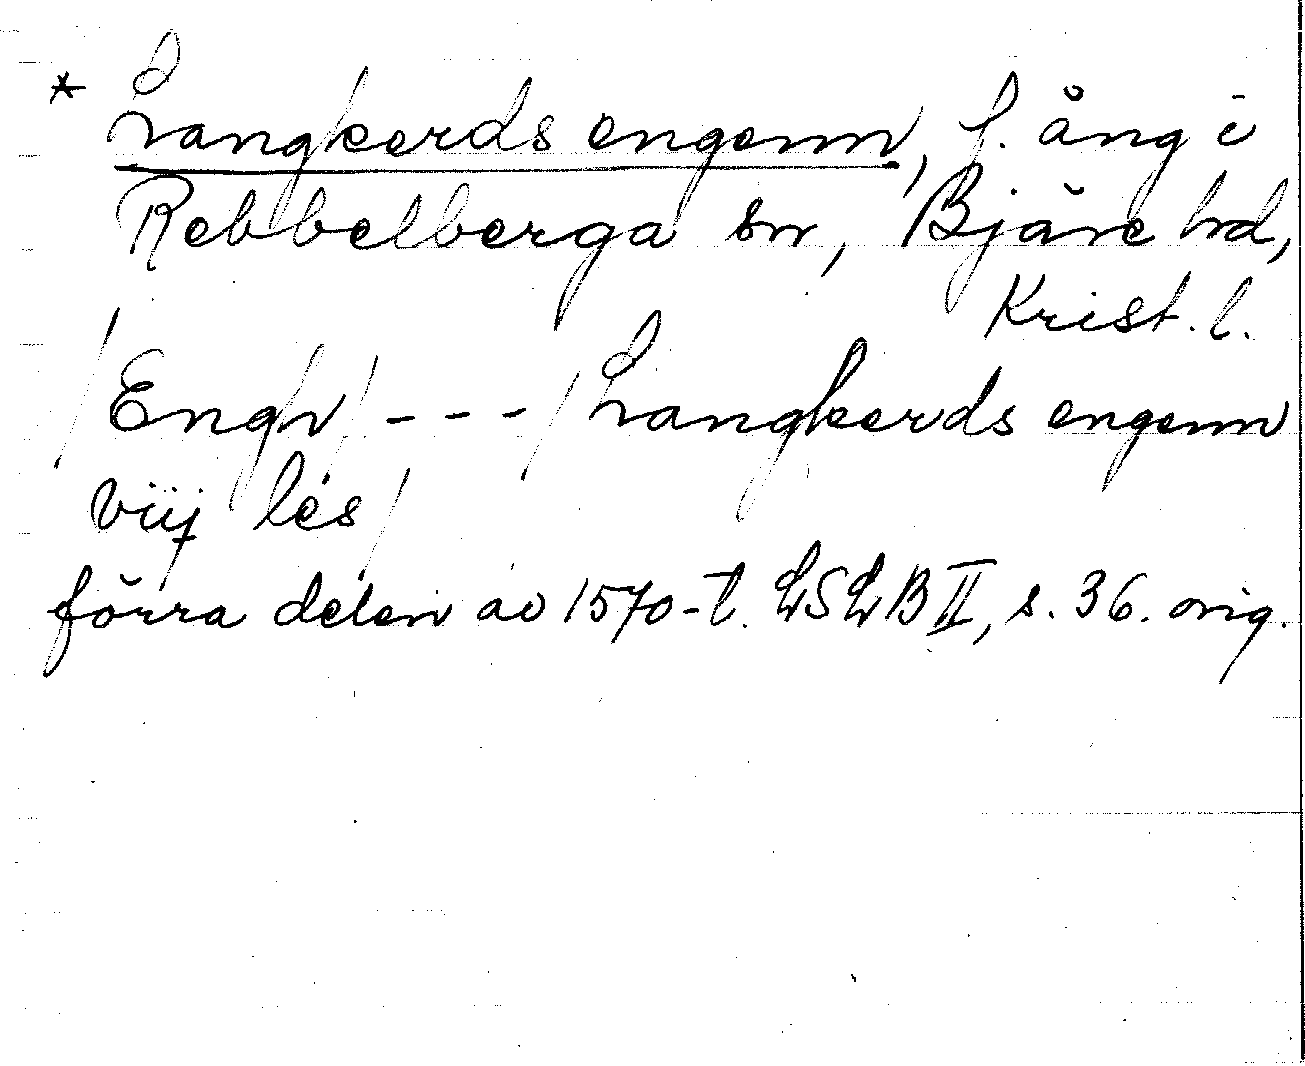 * Langkerds engenn, f. äng i
Rebbelberga sn, Bjäre hd,
Krist. l.
/ Engh / - - - / Langkerds engenn
viij les /
förra delen av 1570-t. LSLB II, s. 36. orig.